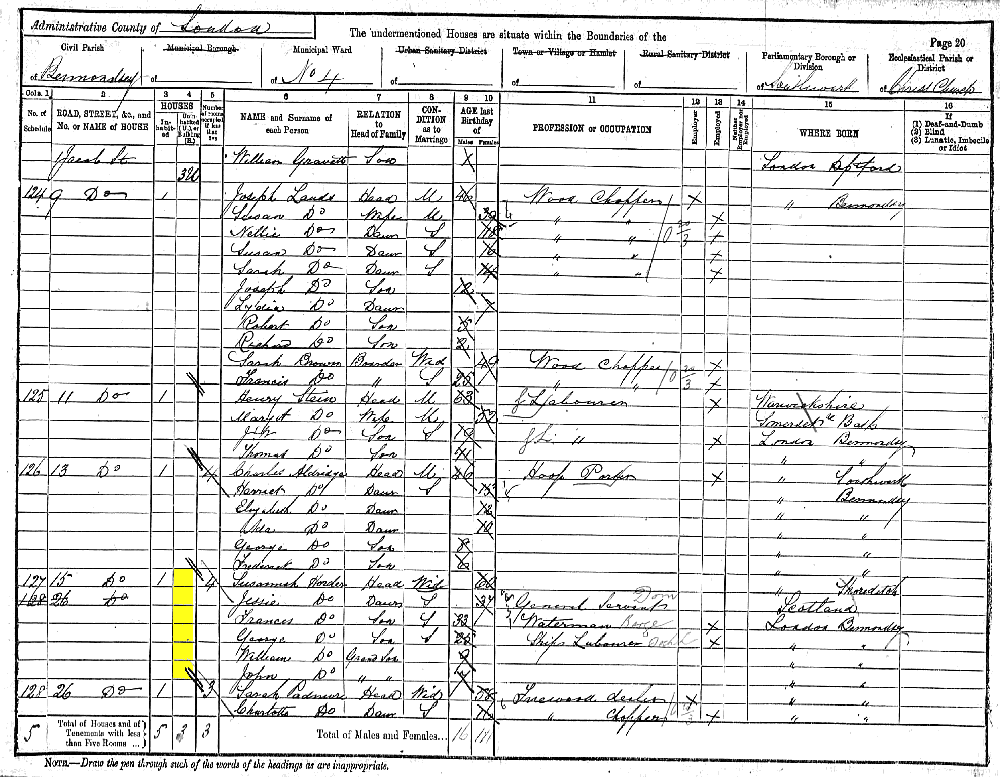 Administrative County of London
The undermentioned Houses are situate within the Boundaries of the
Page 20
Civil Parish
of Bermondsey
Municipal Borough
of
Municipal Ward
of No 4
Urban Sanitary District
of
Town or Village or Hamlet
of
Rural Sanitary District
of
Parliamentary Borough or Division
of Southwark
Ecclesiastical Parish or District
of Christ Church
Cols. 1 2 3 4 5 6 7 8 9 10 11 12 13 14 15 16
No. of Schedule
ROAD, STREET, &c., and No. or NAME of HOUSE
HOUSES
Inhabited
NAME and Surname of each Person
RELATION to Head of Family
CONDITION as to Marriage
AGE last Birthday of
Males Females
PROFESSION or OCCUPATION
Employer
Employed
Neither Employer nor Employed
WHERE BORN
If
(1) Deaf-and-Dumb
(2) Blind
(3) Lunatic, Imbecile or Idiot
Jacob St William Son London Deptford
320
124 9 Do 1 Joseph Lands Head M 46 Wood Chopper X " Bermondsey
Susan Do Wife M 39 " " X
Nellie Do Daur S 18 " " X
Susan Do Daur S 16 " " X
Sarah Do Daur S 14 " " X
Joseph Do Son 12
Lydia Do Daur 7
Robert Do Son 5
Richard Do Son 2
Sarah Brown Boarder Wid 49 Wood Chopper X
Francis Do " S 25 " " X
125 11 Do 1 Henry Stein Head M 53 Labourer X Warwickshire
Margt Do Wife M 53 Somerset Bath
Do Son S 19 " X London Bermondsey
Thomas Do Son " "
126 13 Do 1 4 Charles Aldridge Head M 46 Hoop Porter X " Southwark
Harriet Do Daur S 15 " Bermondsey
Elizabeth Do Daur 12 " "
Ada Do Daur 10 " "
George Do Son 8 " "
Frederick Do Son 6 " "
127 15 Do 1 4 Susannah Head Wid 60 " Shoreditch
128 26 Do Jessie Do Daur S 37 General Servant Dom Scotland
Francis Do Son S 32 Waterman X London Bermondsey
George Do Son S 25 Ships Labourer X " "
William Do Grand Son 9 " "
John Do " " " "
128 26 Do 1 3 Sarah Head Wid 58 Firewood Dealer X " "
Charlotte Do Daur S " Chopper X " "
5 Total of Houses and of Tenements with less than Five Rooms ... 5 3 3 Total of Males and Females... 16 17
NOTE.—Draw the pen through such of the words of the headings as are inappropriate.